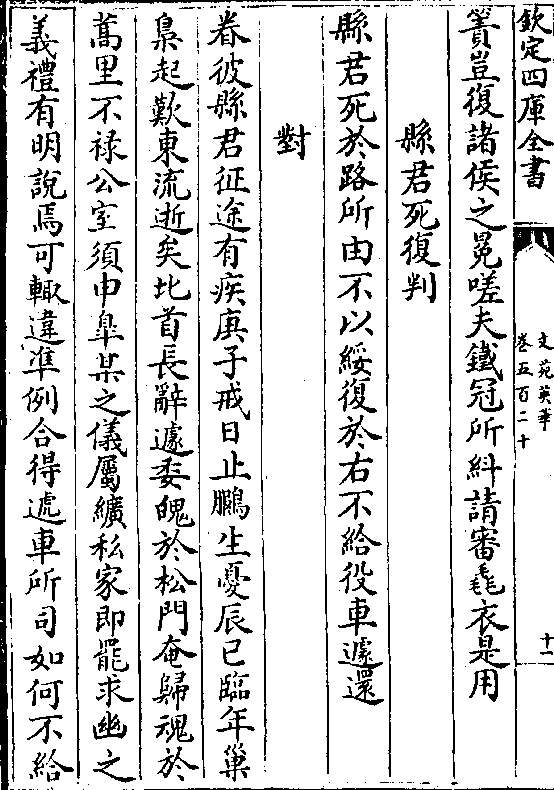 欽定四庫全書
文苑英華
卷五百二十
十一
簀豈復諸侯之冕嗟夫鐵冠所糾請審毳衣是用
縣君死復判
縣君死於路所由不以綏復於右不給役車遽還
對
眷彼縣君征途有疾庚子戒日止鵩生憂辰已臨年巢
梟起歎東流逝矣北首長辭遽委魄於松門奄歸魂於
蒿里不祿公室須申臯某之儀屬纊私家即罷求幽之
義禮有明說焉可輙違準例合得遞車所司如何不給